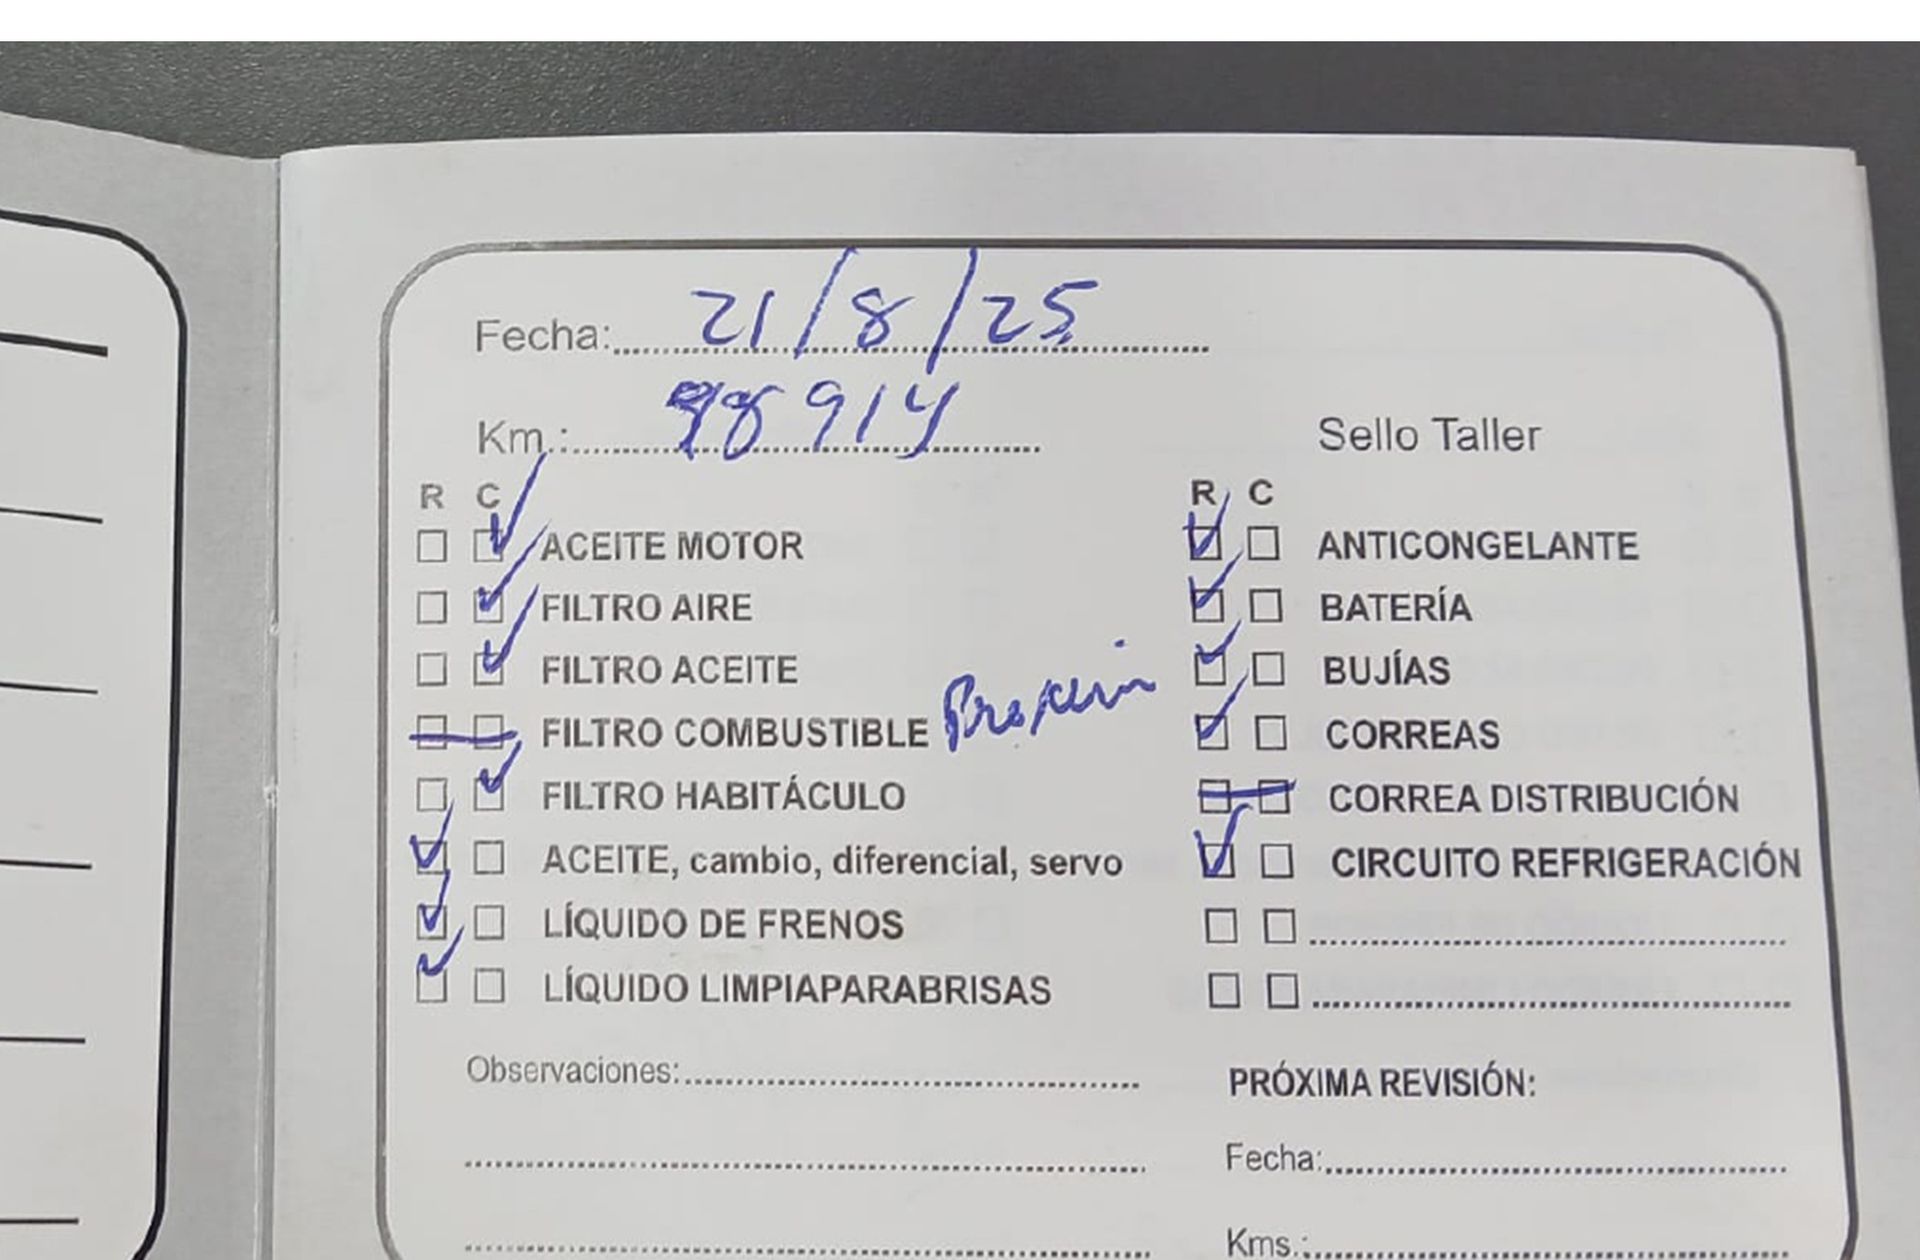 Fecha: 21/8/25
Km.: 98914
Sello Taller
R C
ACEITE MOTOR
FILTRO AIRE
FILTRO ACEITE
FILTRO COMBUSTIBLE
FILTRO HABITÁCULO
ACEITE, cambio, diferencial, servo
LÍQUIDO DE FRENOS
LÍQUIDO LIMPIAPARABRISAS
Observaciones:
R C
ANTICONGELANTE
BATERÍA
BUJÍAS
CORREAS
CORREA DISTRIBUCIÓN
CIRCUITO REFRIGERACIÓN
PRÓXIMA REVISIÓN:
Fecha:
Kms.: